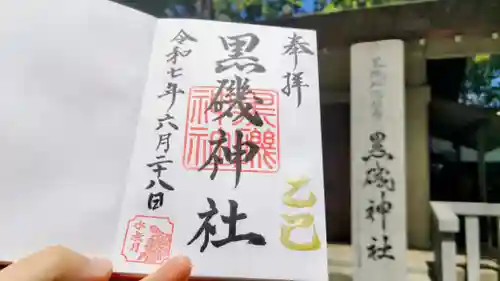 奉拝
黒磯神社
乙巳
令和七年六月二十八日
水無月
黒磯神社